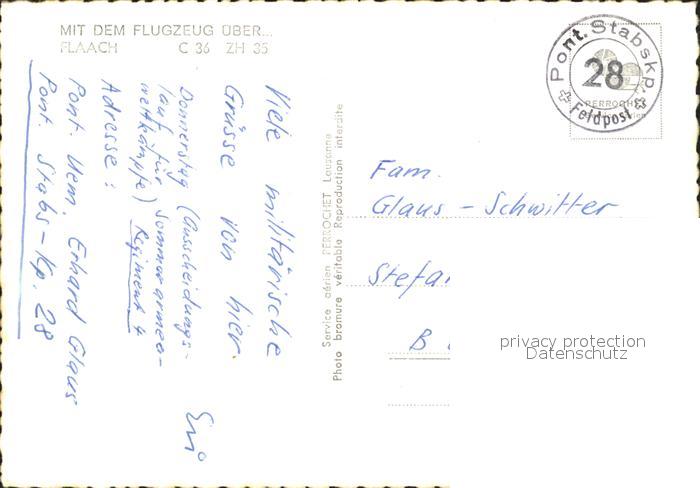 MIT DEM FLUGZEUG ÜBER...
FLAACH C 36 ZH 35
Viele militärische
Grüsse von hier.
Donnerstag (Ausscheidungs-
lauf für Sommerarmee-
wettkämpfe) Regiment 4
Adresse:
Pont. Uem. Erhard Glaus
Pont. Stabs-Kp. 28
Service aérien PERROCHET Lausanne
Photo bromure véritable Reproduction interdite
Pont. Stabskp.
28
Feldpost
PERROCHET
Fam.
Glaus - Schwitter
Stefa
B
privacy protection
Datenschutz